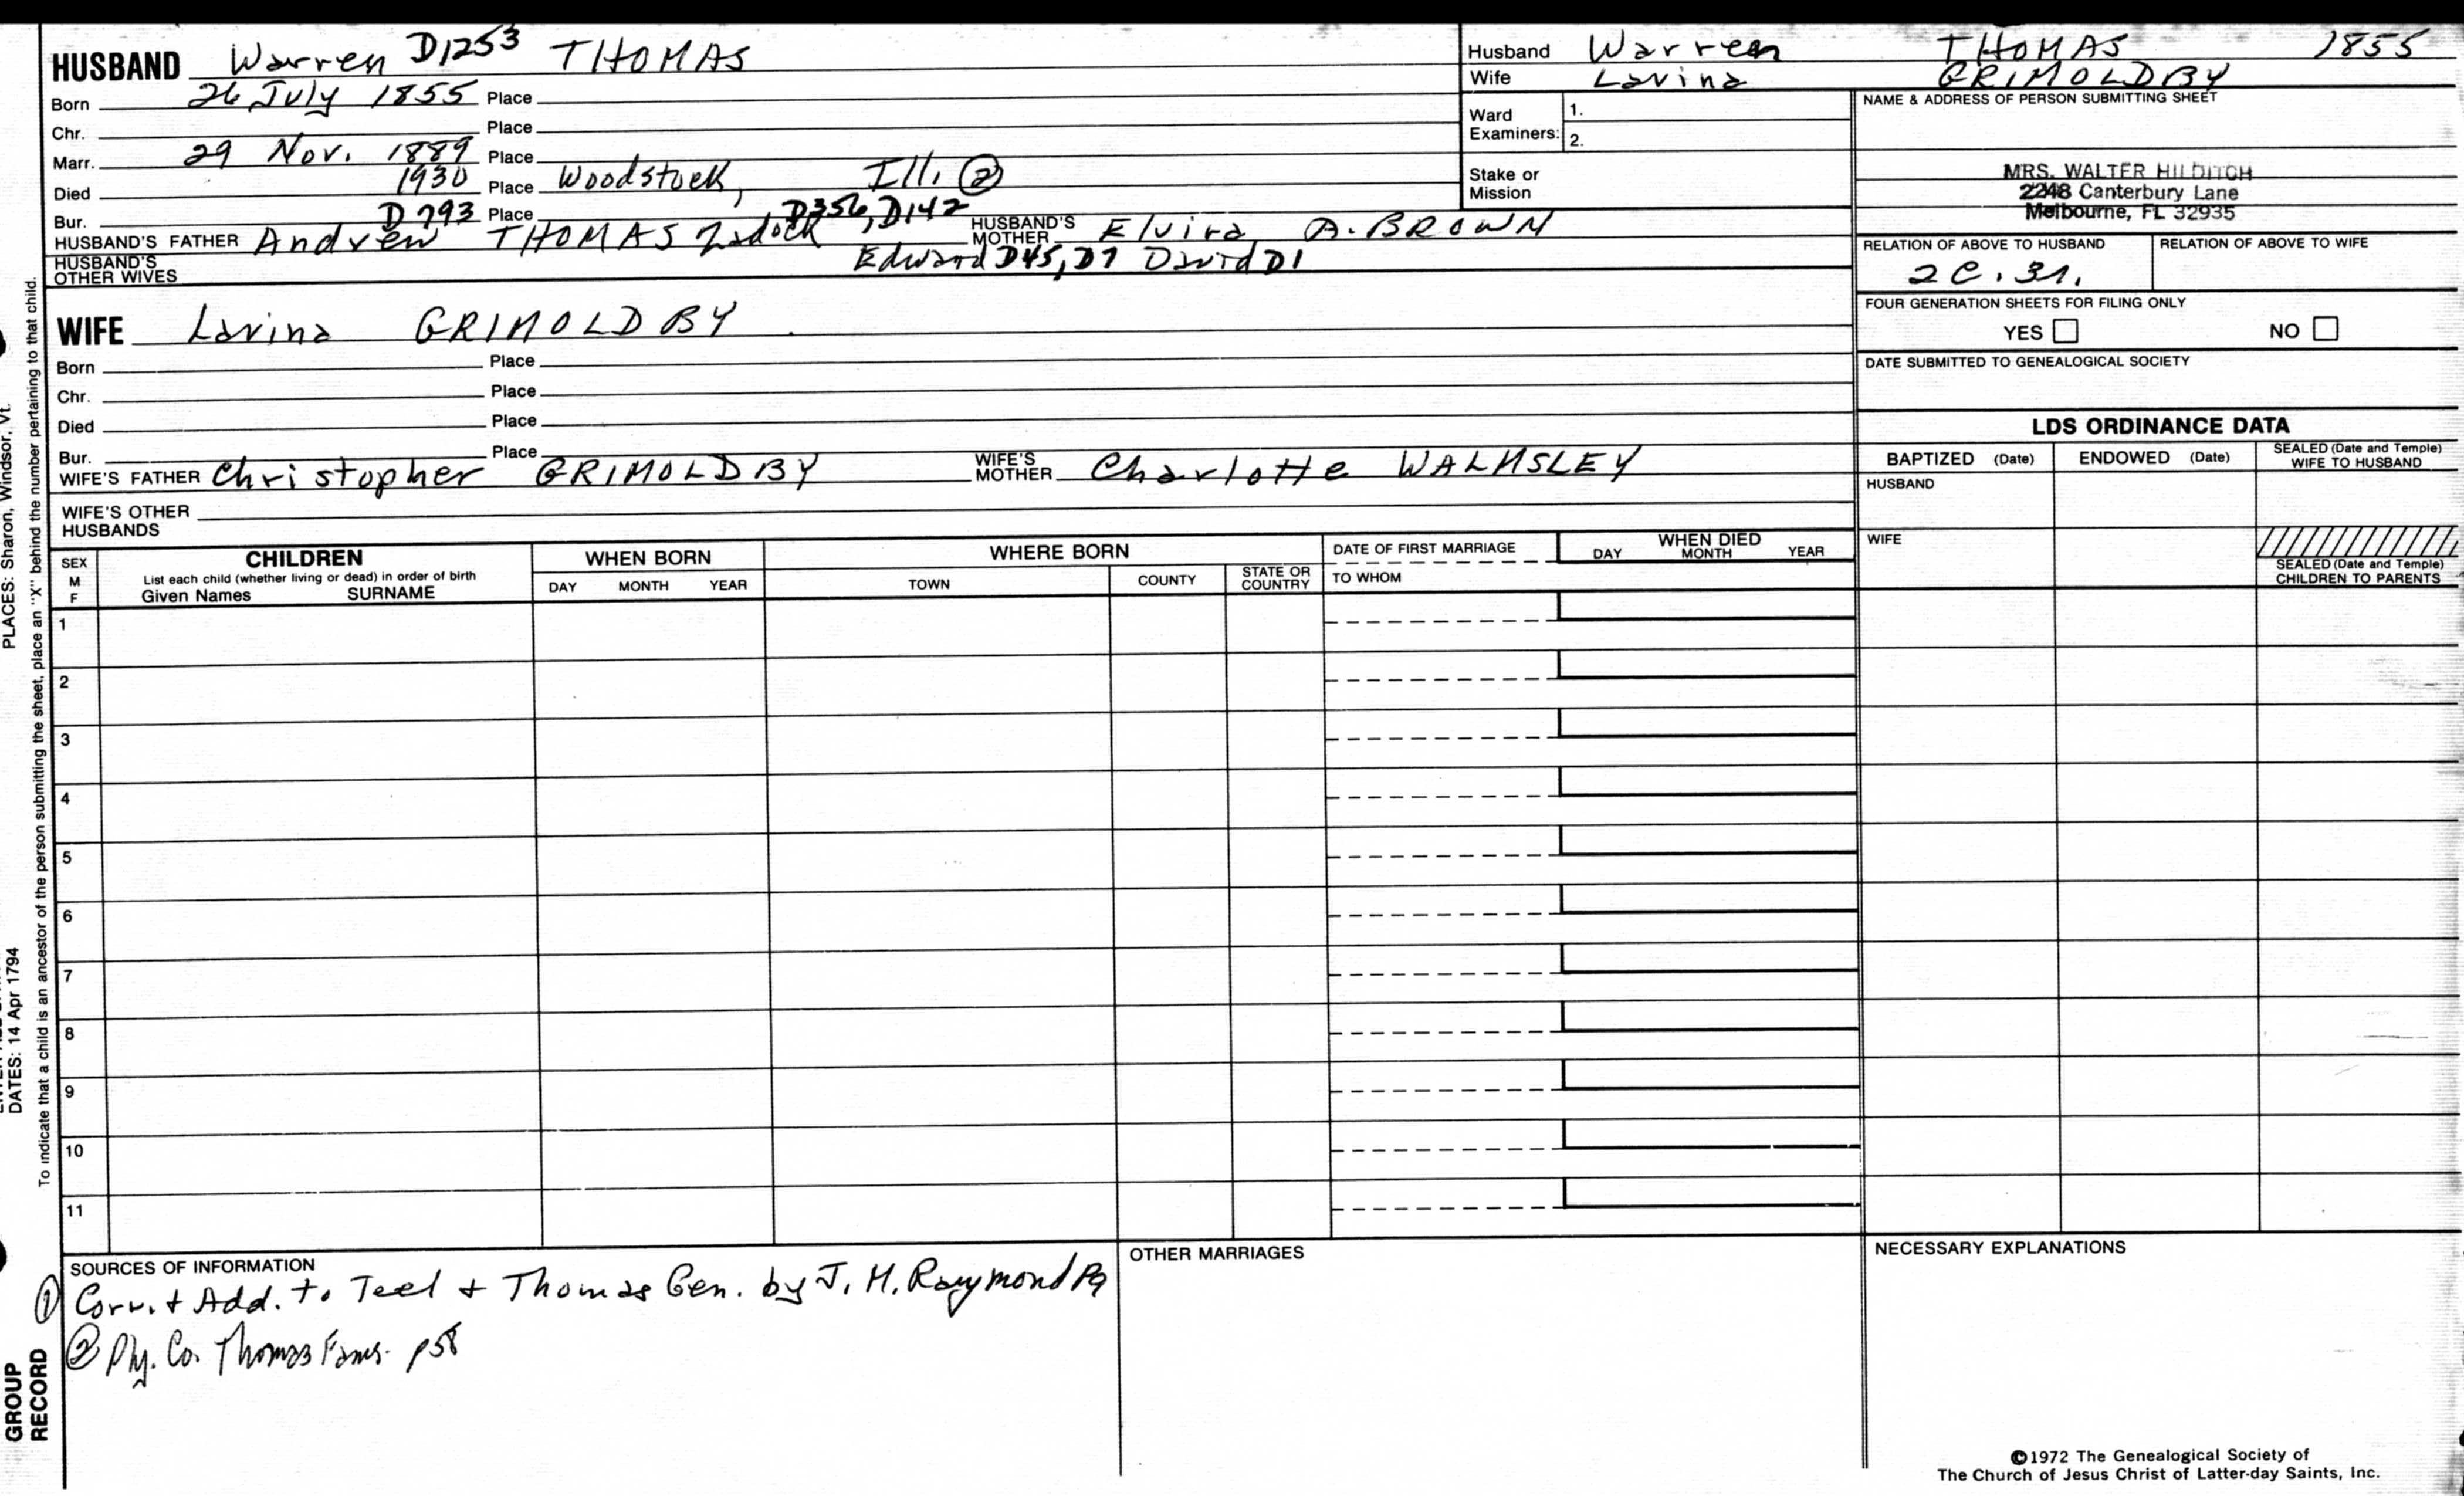 HUSBAND Warren D1253 THOMAS
Born 26 July 1855 Place
Chr. Place
Marr. 29 Nov. 1889 Place
Died 1930 Place Woodstock, Ill. ②
Bur. Place
HUSBAND'S FATHER Andrew D793 THOMAS Zadock D356, D142 HUSBAND'S MOTHER Elvira A. BROWN
HUSBAND'S OTHER WIVES Edward D45, D7 David D1
WIFE Lavina GRIMOLDBY
Born Place
Chr. Place
Died Place
Bur. Place
WIFE'S FATHER Christopher GRIMOLDBY WIFE'S MOTHER Charlotte WALMSLEY
WIFE'S OTHER
HUSBANDS
Husband Warren THOMAS 1855
Wife Lavina GRIMOLDBY
Ward
Examiners:
1.
2.
Stake or
Mission
NAME & ADDRESS OF PERSON SUBMITTING SHEET
MRS. WALTER HILDITCH
2248 Canterbury Lane
Melbourne, FL 32935
RELATION OF ABOVE TO HUSBAND RELATION OF ABOVE TO WIFE
FOUR GENERATION SHEETS FOR FILING ONLY
YES NO
DATE SUBMITTED TO GENEALOGICAL SOCIETY
LDS ORDINANCE DATA
BAPTIZED (Date) ENDOWED (Date) SEALED (Date and Temple)
WIFE TO HUSBAND
HUSBAND
WIFE
SEALED (Date and Temple)
CHILDREN TO PARENTS
SEX
M
F
CHILDREN
List each child (whether living or dead) in order of birth
Given Names SURNAME
WHEN BORN
DAY MONTH YEAR
WHERE BORN
TOWN COUNTY STATE OR COUNTRY
DATE OF FIRST MARRIAGE
TO WHOM
WHEN DIED
DAY MONTH YEAR
1
2
3
4
5
6
7
8
9
10
11
SOURCES OF INFORMATION
① Corr. + Add. to Teel + Thomas Gen. by J. H. Raymond
② Ply. Co. Thomas Fams. p58
OTHER MARRIAGES
NECESSARY EXPLANATIONS
©1972 The Genealogical Society of
The Church of Jesus Christ of Latter-day Saints, Inc.
PLACES: Sharon, Windsor, Vt.
DATES: 14 Apr 1794
To indicate that a child is an ancestor of the person submitting the sheet, place an "X" behind the number pertaining to that child.
GROUP
RECORD